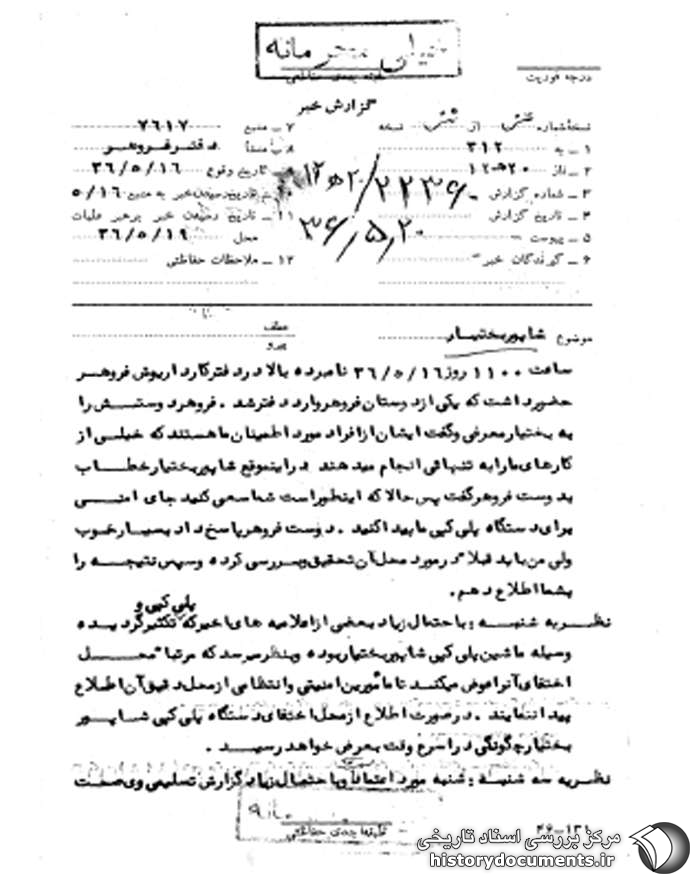 خیلی محرمانه
طبقه بندی حفاظتی
درجه فوریت
گزارش خبر
نسخه شماره از نسخه
۱ – به ۳۱۲
۲ – از ۲۰ﻫ۱۲
۳ – شماره گزارش ۲۰ﻫ۱۲/۲۲۳۶۰
۴ – تاریخ گزارش ۳۶/۵/۲۰
۵ – پیوست –
۶ – گیرندگان خبر –
۷ – منبع ۷۶۱۷
۸ – منشأ دفتر فروهر
۹ – تاریخ وقوع ۳۶/۵/۱۶
۱۰ – تاریخ رسیدن خبر به منبع ۵/۱۶
۱۱ – تاریخ رسیدن خبر برهبر عملیات
محل ۳۶/۵/۱۹
۱۲ – ملاحظات حفاظتی
موضوع شاپور بختیار
عطف
پیرو
ساعت ۱۱۰۰ روز ۳۶/۵/۱۶ نامبرده بالا در دفتر کار داریوش فروهر
حضور داشت که یکی از دوستان فروهر وارد دفتر شد . فروهر دوستش را
به بختیار معرفی و گفت ایشان از افراد مورد اطمینان ما هستند که خیلی از
کارهای ما را به تنهائی انجام میدهند در اینموقع شاپور بختیار خطاب
بدوست فروهر گفت پس حالا که اینطور است شما سعی کنید جای امنی
برای دستگاه پلی کپی ما پیدا کنید . دوست فروهر پاسخ داد بسیار خوب
ولی من باید قبلا در مورد محل آن تحقیق و بررسی کرده و سپس نتیجه را
بشما اطلاع دهم.
نظریه شنبه : با احتمال زیاد بعضی از اعلامیه های اخیر که پلی کپی و تکثیر گردیده
وسیله ماشین پلی کپی شاپور بختیار بوده و بنظر میرسد که مرتبا" محل
اختفای آنرا عوض میکنند تا مأمورین امنیتی و انتظامی از محل دقیق آن اطلاع
پیدا ننمایند . در صورت اطلاع از محل اختفای دستگاه پلی کپی شاپور
بختیار چگونگی در اسرع وقت بعرض خواهد رسید .
نظریه سه شنبه : شنبه مورد اعتماد و با احتمال زیاد گزارش تسلیمی وی صحت
طبقه بندی حفاظتی
مرکز بررسی اسناد تاریخی
historydocuments.ir